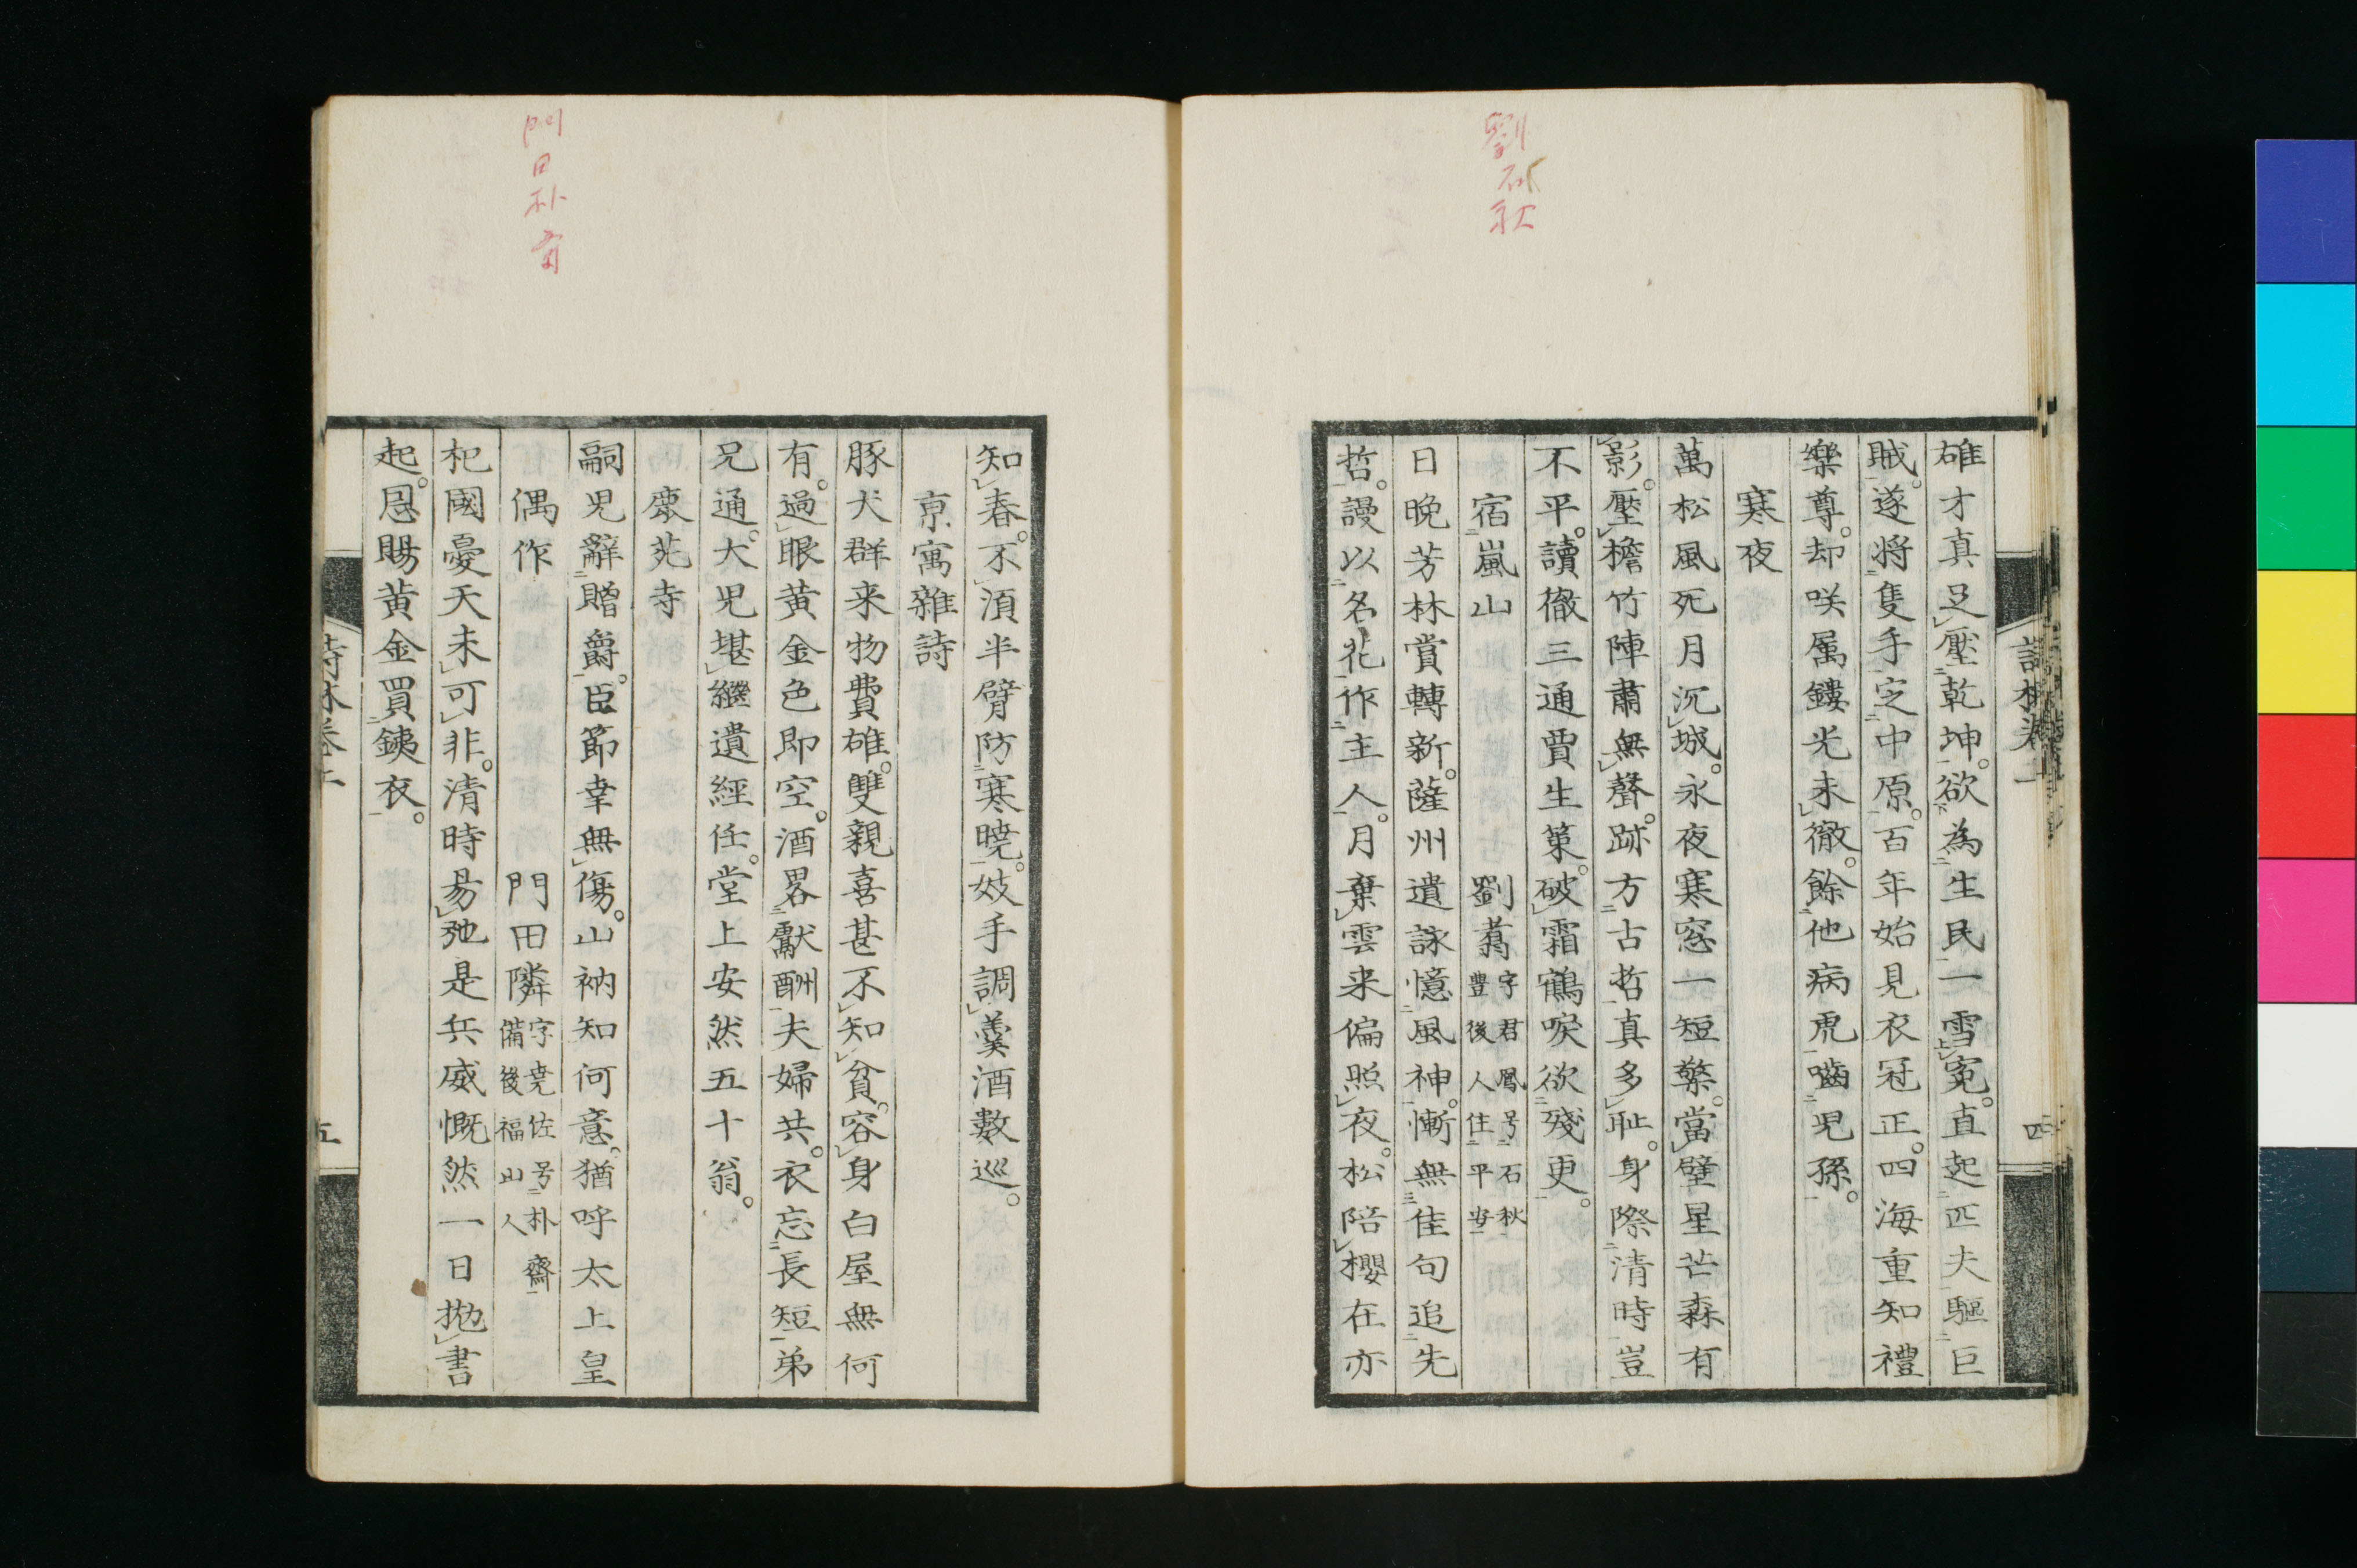 劉石秋
雄才真足壓乾坤。欲為生民一雪冤。直起匹夫驅巨
賊。遂将隻手定中原。百年始見衣冠正。四海重知禮
樂尊。却咲属鏤光未徹。餘他病虎嚙児孫。
寒夜
萬松風死月沉城。永夜寒窓一短檠。當壁星芒森有
影。壓檐竹陣肅無聲。跡方古哲真多耻。身際清時豈
不平。讀徹三通賈生策。破霜鶴唳欲殘更。
宿嵐山
劉翥
字君鳳号石秋
豊後人住平安
日晩芳林賞轉新。薩州遺詠憶風神。慚無佳句追先
哲。謾以名花作主人。月棄雲来偏照夜。松陪櫻在亦
四
門田朴斎
知春。不須半臂防寒曉。妓手調羹酒數巡。
京寓雜詩
豚犬群来物費雄。雙親喜甚不知貧。容身白屋無何
有。過眼黄金色即空。酒畧獻酬夫婦共。衣忘長短弟
兄通。大児堪繼遺經任。堂上安然五十翁。
鹿苑寺
嗣児辭贈爵。臣節幸無傷。山衲知何意。猶呼太上皇
偶作
門田隣
字堯佐号朴齋
備後福山人
杞國憂天未可非。清時易弛是兵威慨然一日抛書
起。恩賜黄金買銕衣。
五